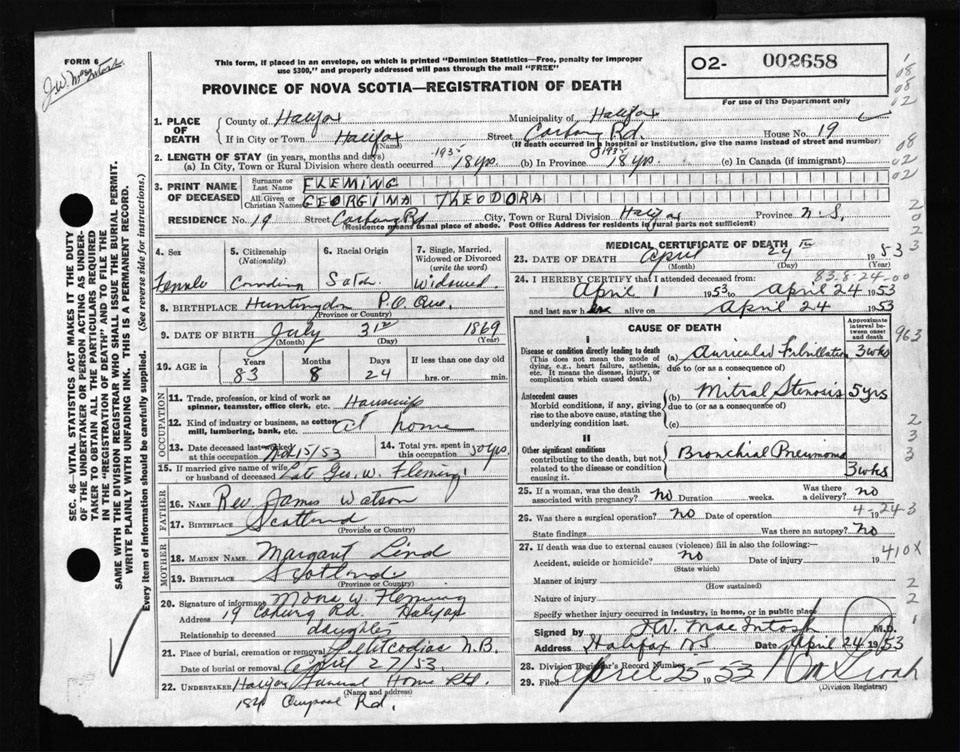 FORM 6
J.W. MacIntosh
This form, if placed in an envelope, on which is printed "Dominion Statistics—Free, penalty for improper
use $300," and properly addressed will pass through the mail "FREE"
O2- 002658
For use of the Department only
PROVINCE OF NOVA SCOTIA—REGISTRATION OF DEATH
1. PLACE OF DEATH
County of Halifax Municipality of Halifax
If in City or Town Halifax Street Rd. House No. 19
(Name) (If death occurred in a hospital or institution, give the name instead of street and number)
2. LENGTH OF STAY (in years, months and days) 1935 1935
(a) In City, Town or Rural Division where death occurred 18 yrs. (b) In Province 18 yrs. (c) In Canada (if immigrant)
3. PRINT NAME OF DECEASED
Surname or Last Name FLEMING
All Given or Christian Names GEORGINA THEODORA
RESIDENCE No. 19 Street Rd City, Town or Rural Division Halifax Province N.S.
(Residence means usual place of abode. Post Office Address for residents in rural parts not sufficient)
4. Sex
Female
5. Citizenship (Nationality)
6. Racial Origin
7. Single, Married, Widowed or Divorced (write the word)
Widowed
8. BIRTHPLACE Huntingdon P.Q. Que.
(Province or Country)
9. DATE OF BIRTH July 31st 1869
(Month) (Day) (Year)
10. AGE in Years Months Days If less than one day old
83 8 24 hrs. or min.
OCCUPATION
11. Trade, profession, or kind of work as spinner, teamster, office clerk, etc. Housewife
12. Kind of industry or business, as cotton mill, lumbering, bank, etc. At home
13. Date deceased last worked at this occupation 15/53
14. Total yrs. spent in this occupation 50 yrs.
15. If married give name of wife or husband of deceased Late Geo. W. Fleming
FATHER
16. NAME Rev. James Watson
17. BIRTHPLACE Scotland
(Province or Country)
MOTHER
18. MAIDEN NAME Margaret Lind
19. BIRTHPLACE Scotland
(Province or Country)
20. Signature of informant Mona W. Fleming
Address 19 Coburg Rd. Halifax
Relationship to deceased daughter
21. Place of burial, cremation or removal Petitcodiac N.B.
Date of burial or removal April 27/53.
22. UNDERTAKER Halifax Funeral Home
(Name and address)
Rd.
MEDICAL CERTIFICATE OF DEATH
23. DATE OF DEATH April 24th 1953
(Month) (Day) (Year)
83-8-24-00
24. I HEREBY CERTIFY that I attended deceased from:
April 1 1953 to April 24 1953
and last saw her alive on April 24 1953
CAUSE OF DEATH
Approximate interval between onset and death
I
Disease or condition directly leading to death
(This does not mean the mode of dying, e.g., heart failure, asthenia, etc. It means the disease, injury, or complication which caused death.)
(a) Auricular Fibrillation 3 wks
due to (or as a consequence of)
Antecedent causes
Morbid conditions, if any, giving rise to the above cause, stating the underlying condition last.
(b) Mitral Stenosis 5 yrs
due to (or as a consequence of)
(c)
II
Other significant conditions
contributing to the death, but not related to the disease or condition causing it.
Bronchial Pneumonia
3 wks
25. If a woman, was the death associated with pregnancy? no Duration weeks. Was there a delivery? no
26. Was there a surgical operation? no Date of operation 19
State findings Was there an autopsy? No
27. If death was due to external causes (violence) fill in also the following:—
Accident, suicide or homicide? no Date of injury 19
(State which)
410X
Manner of injury
(How sustained)
Nature of injury
Specify whether injury occurred in industry, in home, or in public place
Signed by J.W. MacIntosh M.D.
Address Halifax NS Date April 24 1953
28. Division Registrar's Record Number
29. Filed April 25 1953
(Division Registrar)
SEC. 46—VITAL STATISTICS ACT MAKES IT THE DUTY
OF THE UNDERTAKER OR PERSON ACTING AS UNDERTAKER TO OBTAIN ALL THE PARTICULARS REQUIRED
IN THE "REGISTRATION OF DEATH" AND TO FILE THE
SAME WITH THE DIVISION REGISTRAR WHO SHALL ISSUE THE BURIAL PERMIT.
WRITE PLAINLY WITH UNFADING INK. THIS IS A PERMANENT RECORD.
Every item of information should be carefully supplied. (See reverse side for instructions.)